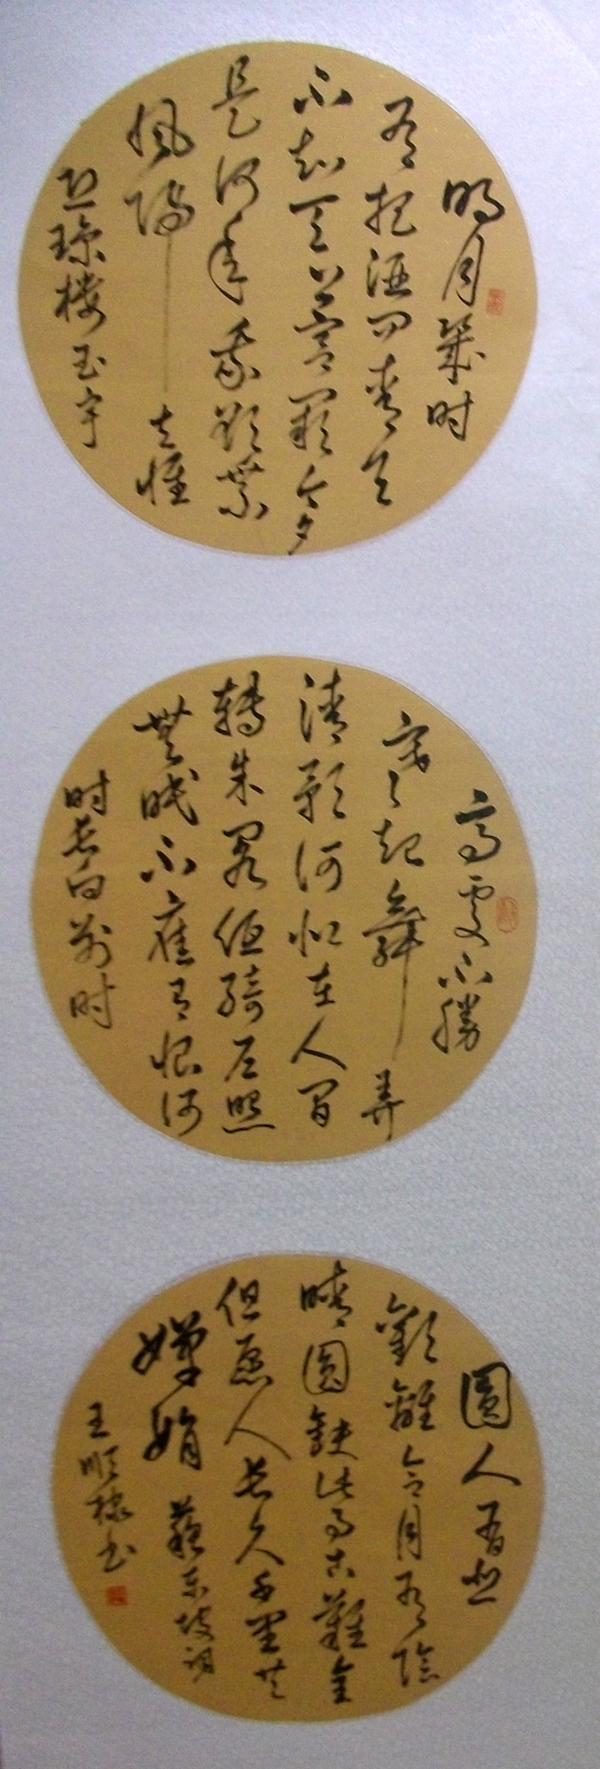 明月幾时
有把酒问青天
不知天上宫阙今夕
是何年我欲乘
風归去惟
恐琼楼玉宇
高處不勝
寒起舞弄
清影何似在人间
轉朱阁低绮户照
無眠不應有恨何
时长向别时
圓人有悲
歡離合月有陰
晴圓缺此事古難全
但愿人长久千里共
嬋娟 蘇东坡词
王顺禄书